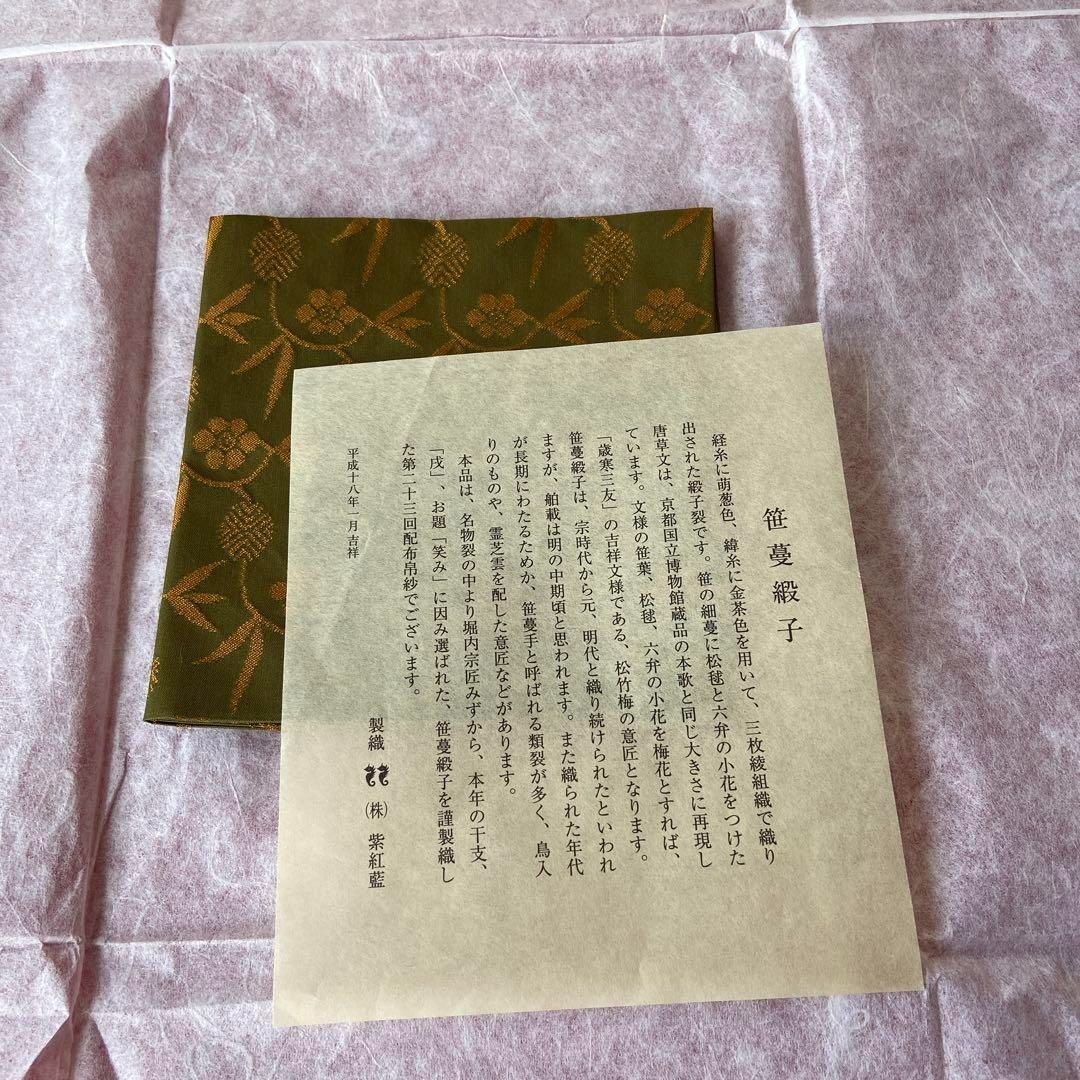 笹蔓緞子
経糸に萌葱色、緯糸に金茶色を用いて、三枚綾組織で織り
出された緞子裂です。笹の細蔓に松毬と六弁の小花をつけた
唐草文は、京都国立博物館蔵品の本歌と同じ大きさに再現し
ています。文様の笹葉、松毬、六弁の小花を梅花とすれば、
「歳寒三友」の吉祥文様である、松竹梅の意匠となります。
笹蔓緞子は、宗時代から元、明代と織り続けられたといわれ
ますが、舶載は明の中期頃と思われます。また織られた年代
が長期にわたるためか、笹蔓手と呼ばれる類裂が多く、鳥入
りのものや、霊芝雲を配した意匠などがあります。
本品は、名物裂の中より堀内宗匠みずから、本年の干支、
「戌」、お題「笑み」に因み選ばれた、笹蔓緞子を謹製織し
た第二十三回配布帛紗でございます。
平成十八年一月吉祥
製織 (株) 紫紅藍